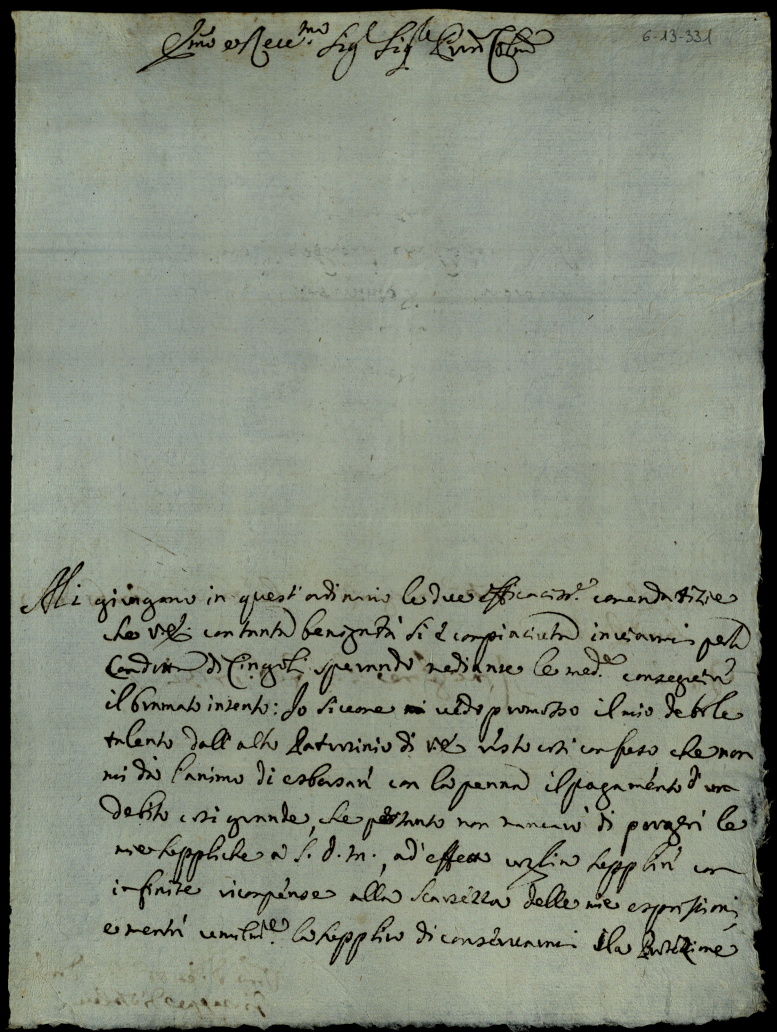 6-13-331
Ill.mo et Ecc.mo Sig.r Sig.r P.ron Col.mo
Mi giungono in quest'ordinario le due efficaciss.e comendatizie
che V.E. con tanta benignità si è compiaciuta inviarmi per la
Condotta di Cingoli, sperando mediante le med.e conseguire
il bramato intento: Io siccome vedo promosso il mio debole
talento dall'alto Patrocinio di V.E. resto così confuso che non
mi dà l'animo di esborsare con la penna il pagamento d'un
debito così grande, che pertanto non mancarò di porgere le
mie suppliche a S. d. m., ad'effetto voglia supplire con
infinite ricompense alla scarsezza delle mie espressioni,
e mentre umilm.te la supplico di conservarmi la Protezione